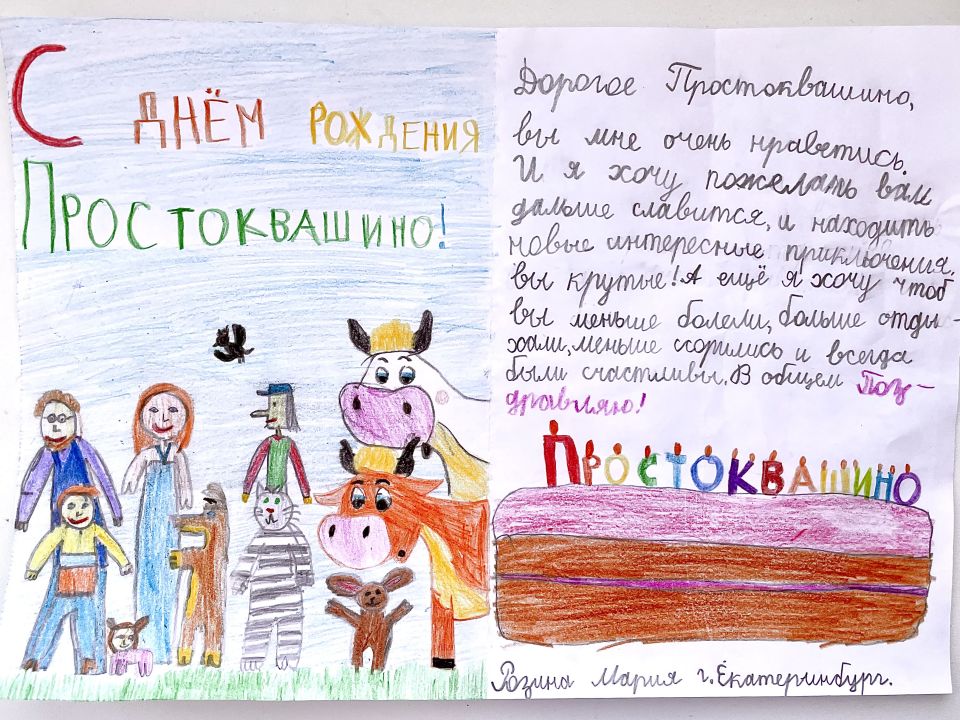 С ДНЁМ РОЖДЕНИЯ
ПРОСТОКВАШИНО!
Дорогое Простоквашино,
вы мне очень нравитись.
И я хочу пожелать вам
дальше славится, и находить
новые интересные приключения.
вы крутые! А ещё я хочу чтоб
вы меньше болели, больше отды-
хали, меньше ссорились и всегда
были счастливы. В общем Поз-
дравляю!
ПРОСТОКВАШИНО
Мария г. Екатеринбург.